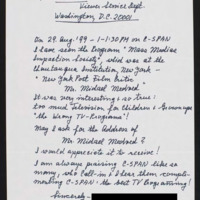 Viewer Service Dept.
Washington, D.C. 20001
On 29 Aug. '99 - 1-1:30 PM on C-SPAN
I have seen the Program "Mass Media
Impact on Society", which was at the
Institution, New York -
- New York Post Film Critic
Mr. Michael Medved.
It was very interesting & so true!
Too much Television for Children & Encourage
"the Wrong TV-Programs"!
May I ask for the Address of
Mr. Michael Medved?
I would appreciate it to receive!
I am always praising C-SPAN like so
many, who call-in & I hear them compli-
menting C-SPAN - the best TV Programming!
Sincerely -